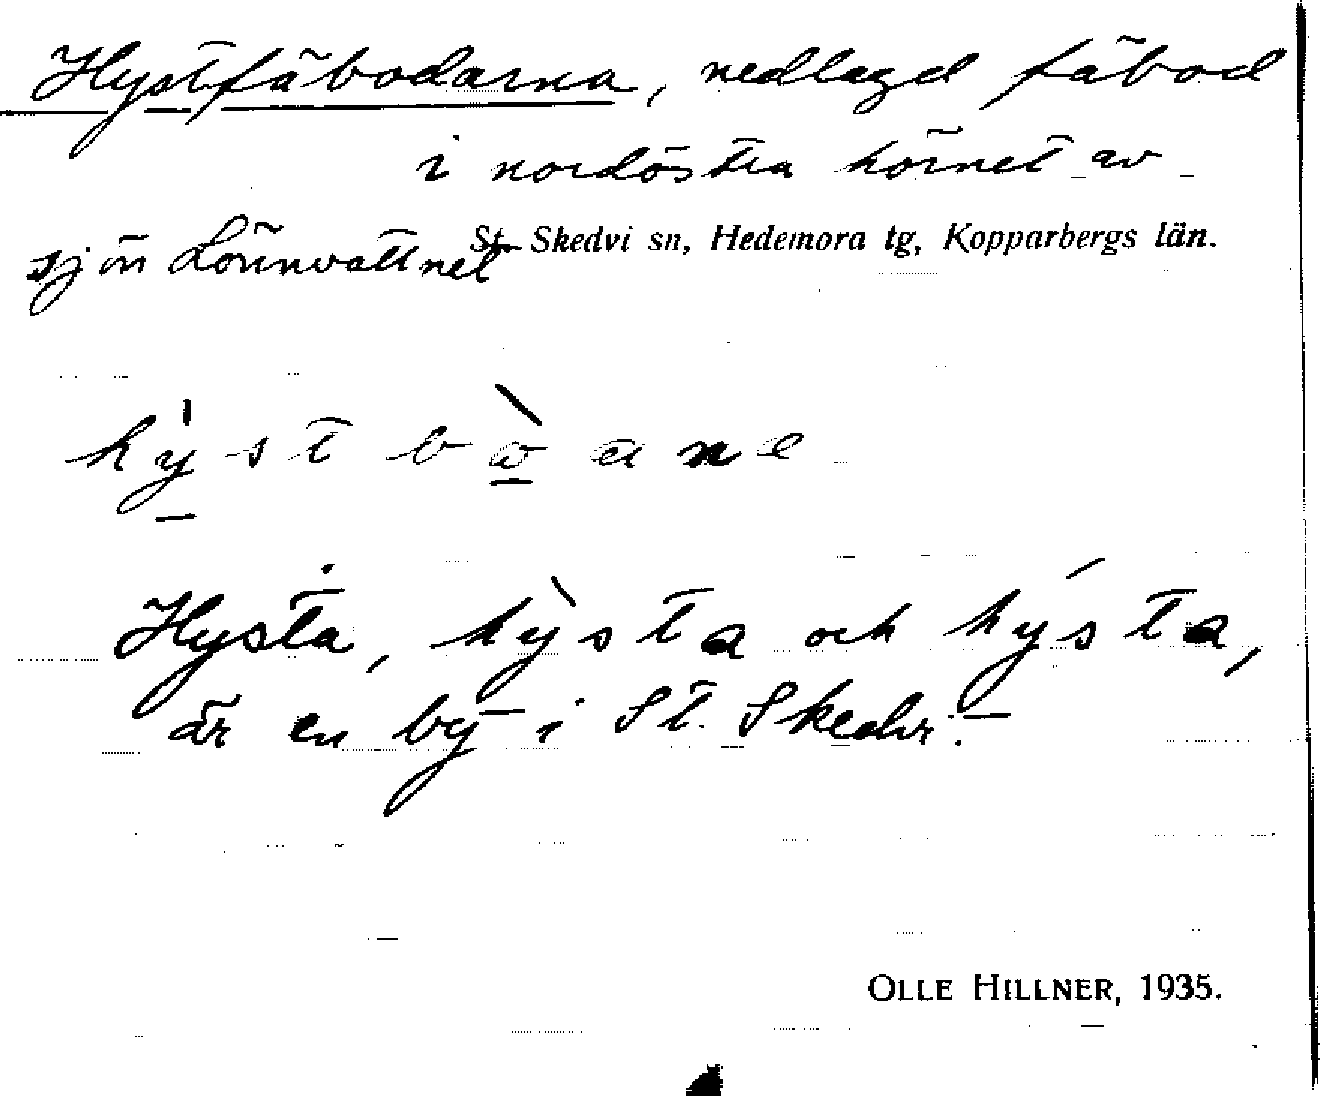 Hystfäbodarna, nedlagd fäbod
i nordöstra hörnet av
sjön Lönnvattnet
St. Skedvi sn, Hedemora tg, Kopparbergs län.
hy̱st bò̱ ane
Hysta, hỳsta och hýsta,
är en by i St. Skedvi.
OLLE HILLNER, 1935.